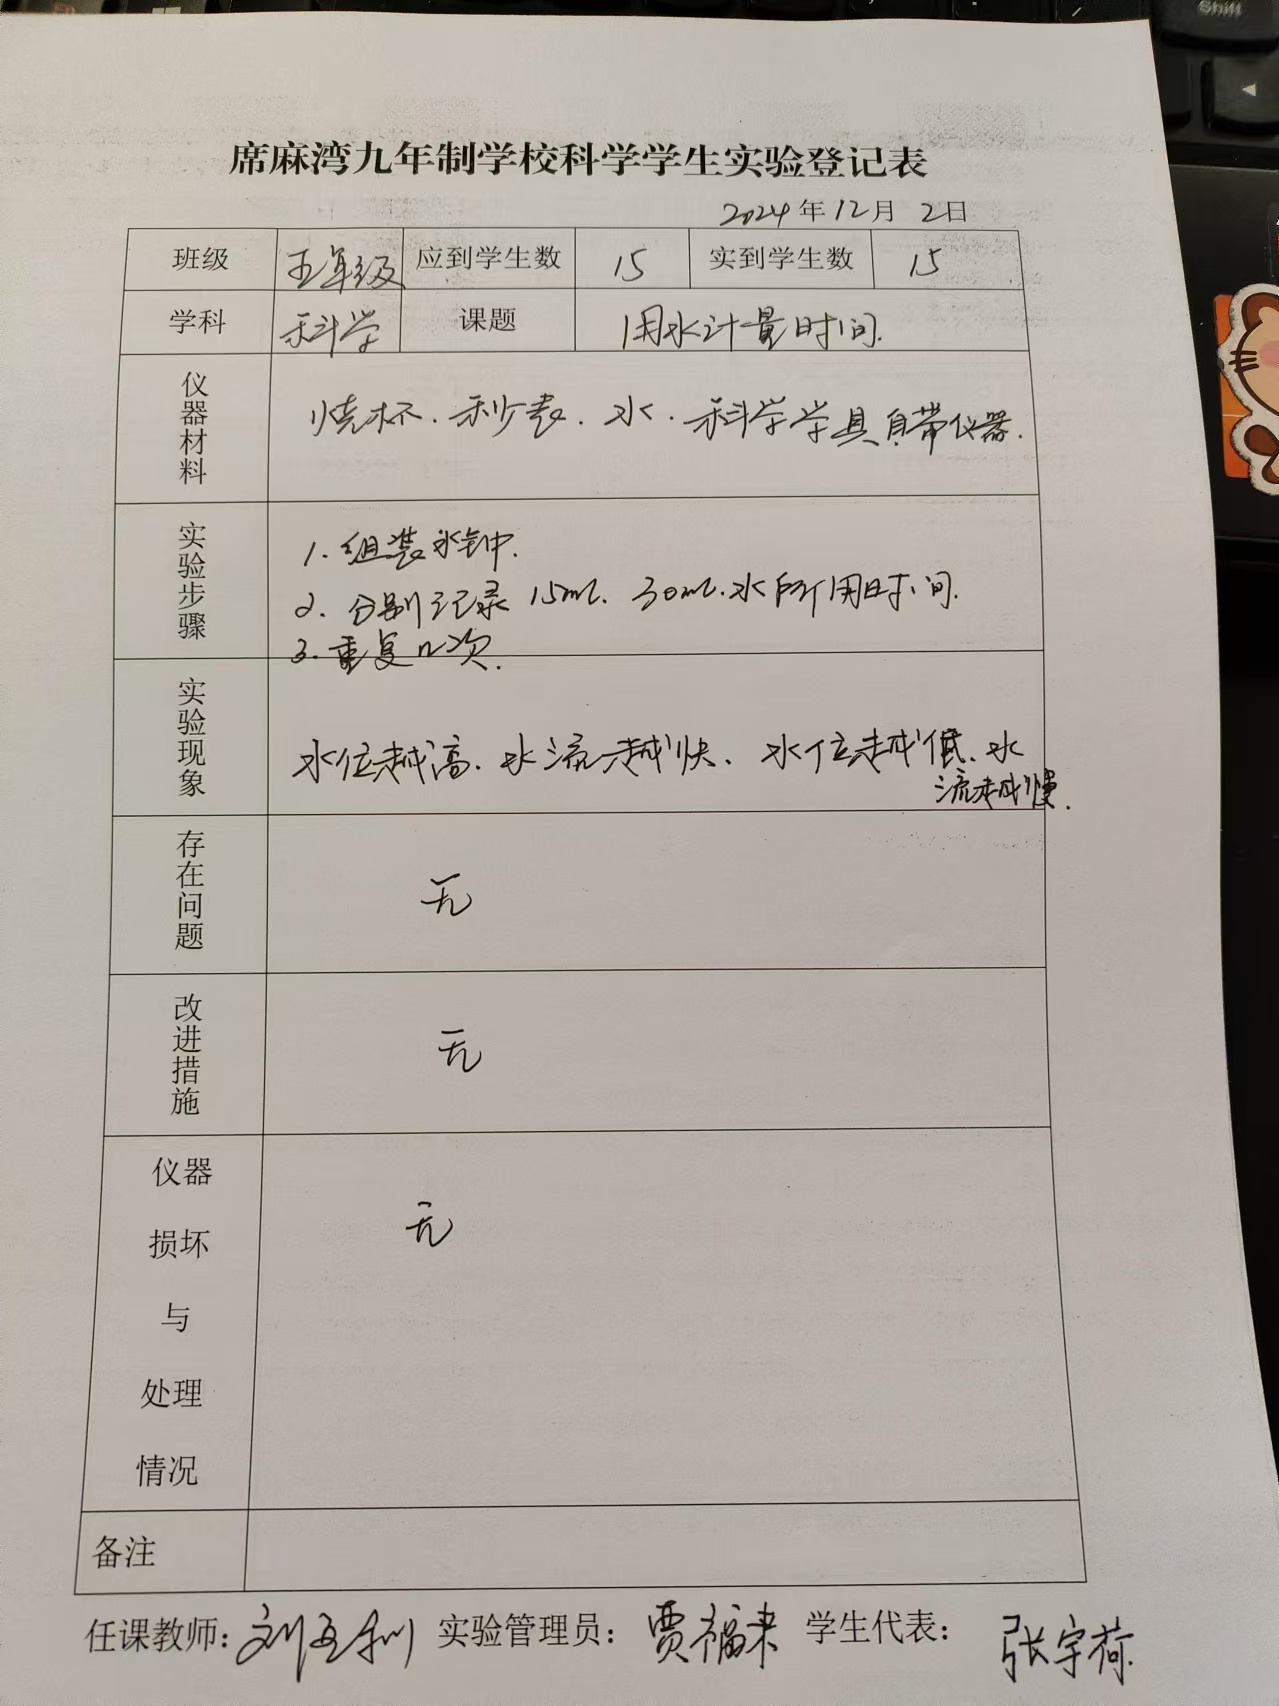 Shift
席麻湾九年制学校科学学生实验登记表
2024年12月2日
班级 五年级 应到学生数 15 实到学生数 15
学科 科学 课题 用水计量时间.
仪器材料 烧杯.秒表.水.科学学具自带仪器.
实验步骤 1.组装水钟.
2.分别记录15mL.30mL.水所用时间.
3.重复几次.
实验现象 水位越高.水流越快、水位越低、水
流越慢.
存在问题 无
改进措施 无
仪器 无
损坏
与
处理
情况
备注
任课教师:刘 利 实验管理员:贾福来 学生代表:张宇荷